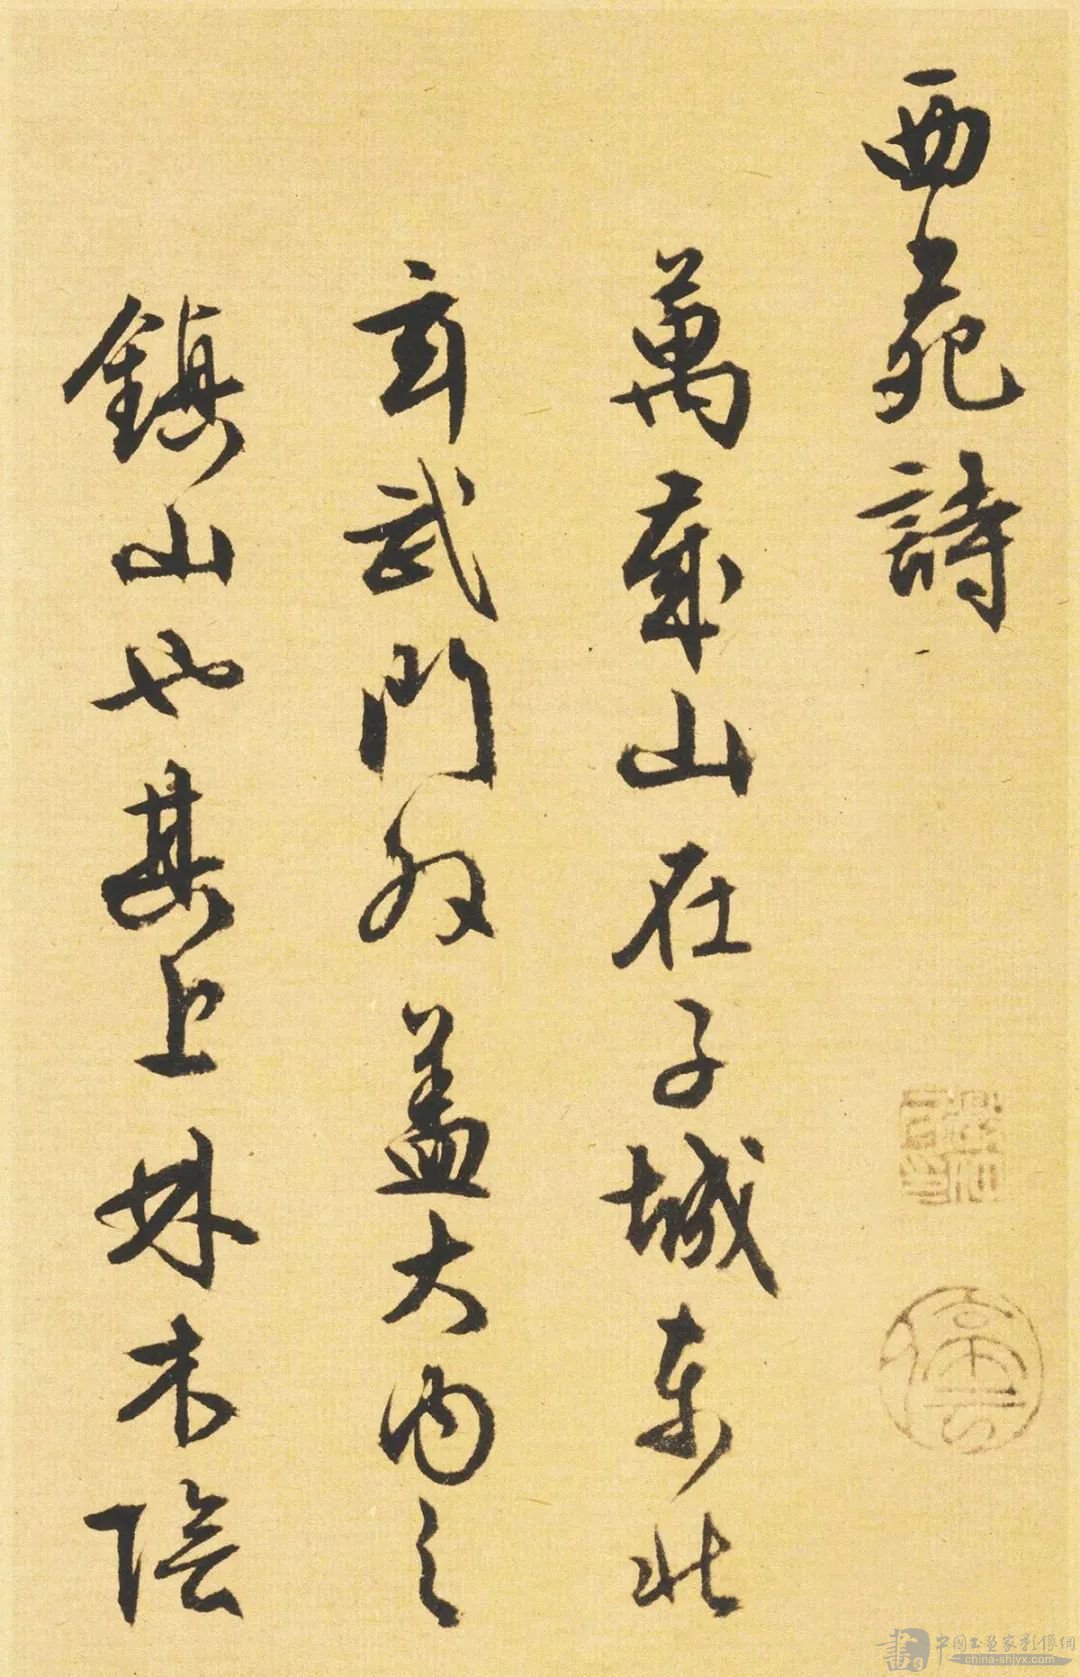 西苑詩
萬歲山在子城東北
玄武門外蓋大內之
鎮山也其上林木陰
中国书画家影像網
china-shjyx.com